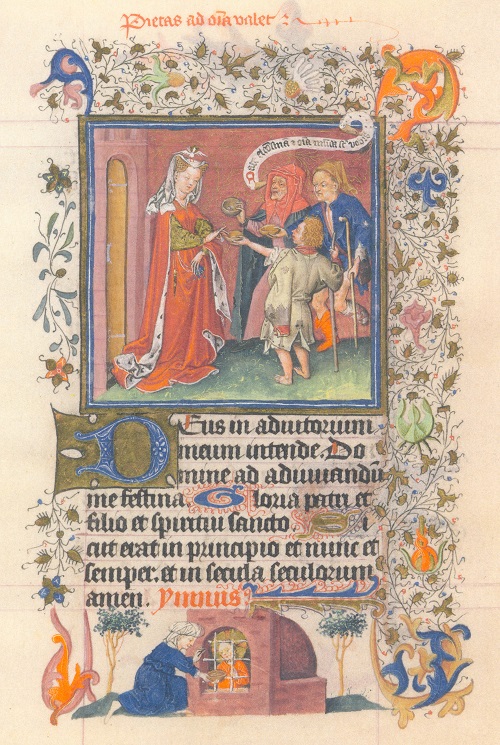 Pietas ad oīa valet :~
Date elemosina & oīa
Deus in adiutorium
meum intende. Do
mine ad adiuuandū
me festina. Gloria patri et
filio et spiritui sancto. Si
cut erat in principio et nunc et
semper. et in secula seculorum
amen. Ymnus